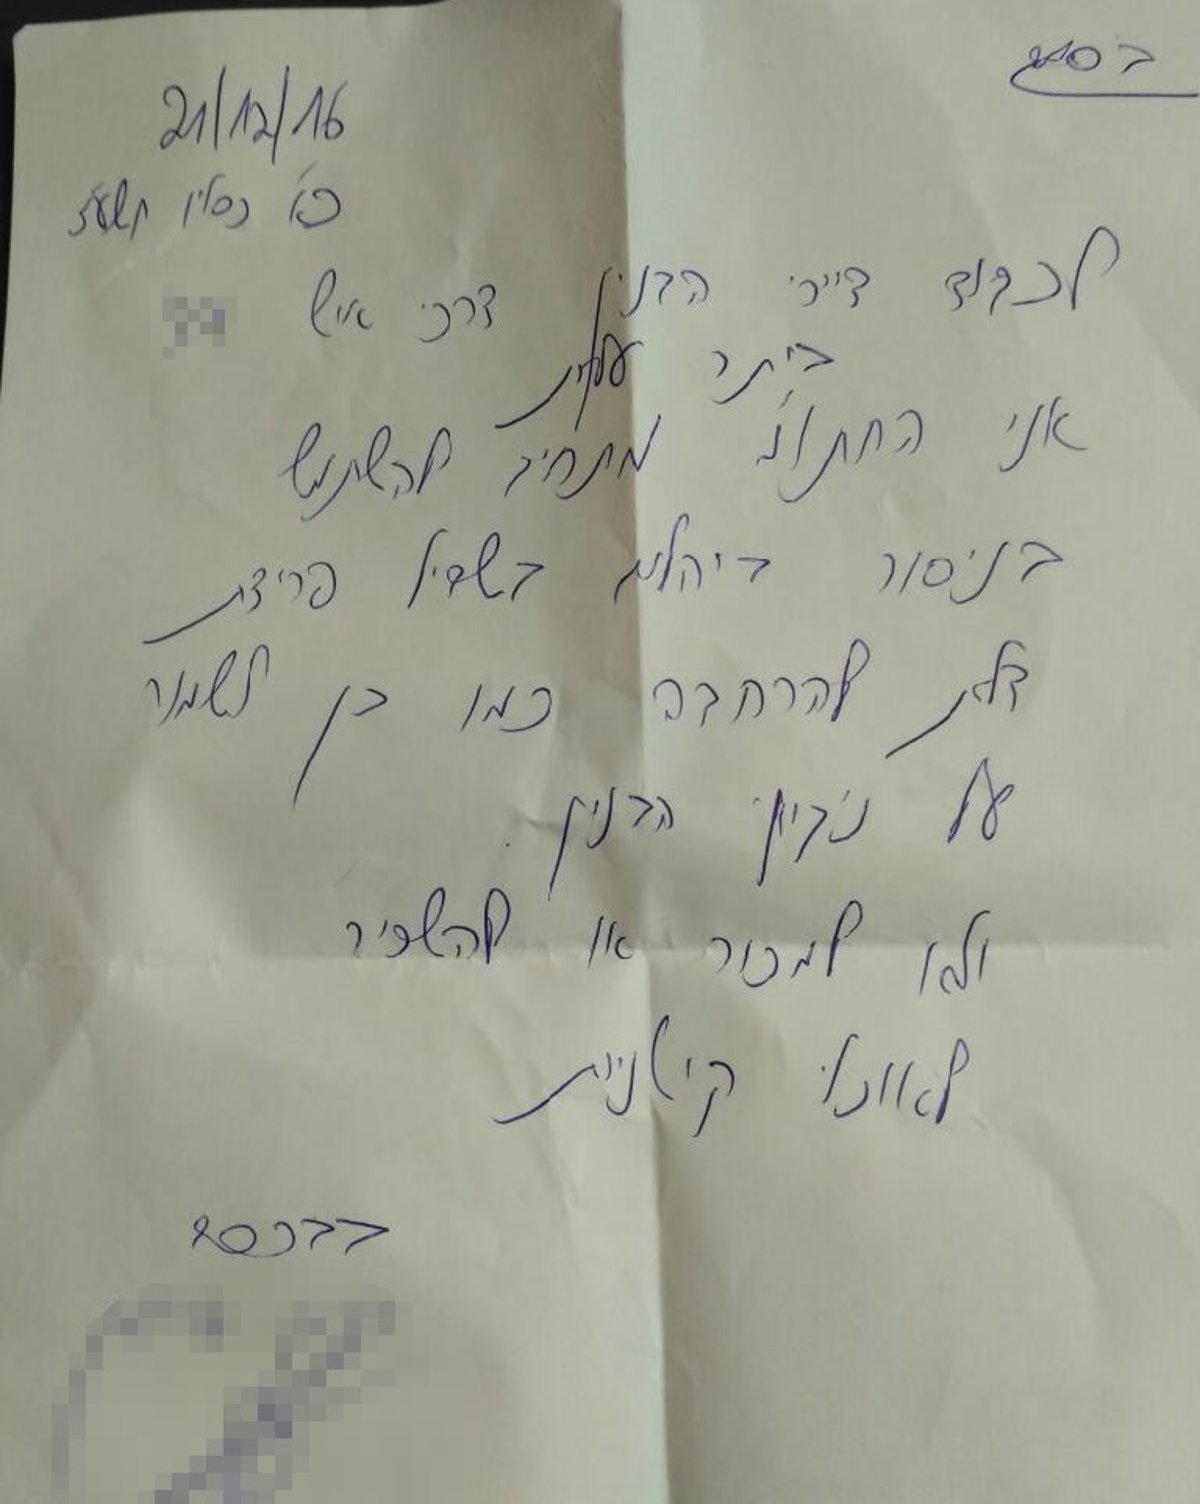 בס"ד
21/12/16
כא' כסליו תשע"ז
לכבוד דיירי הבנין דרכי איש
ביתר עלית
אני החתו"מ מתחיב להשתמש
בניסור ביהלום בשביל פריצת
דלת להרחבה כמו כן לשמור
על נקיון הבנין.
ולא למכור או להשכיר
לאוכלי קיטניות
בברכה